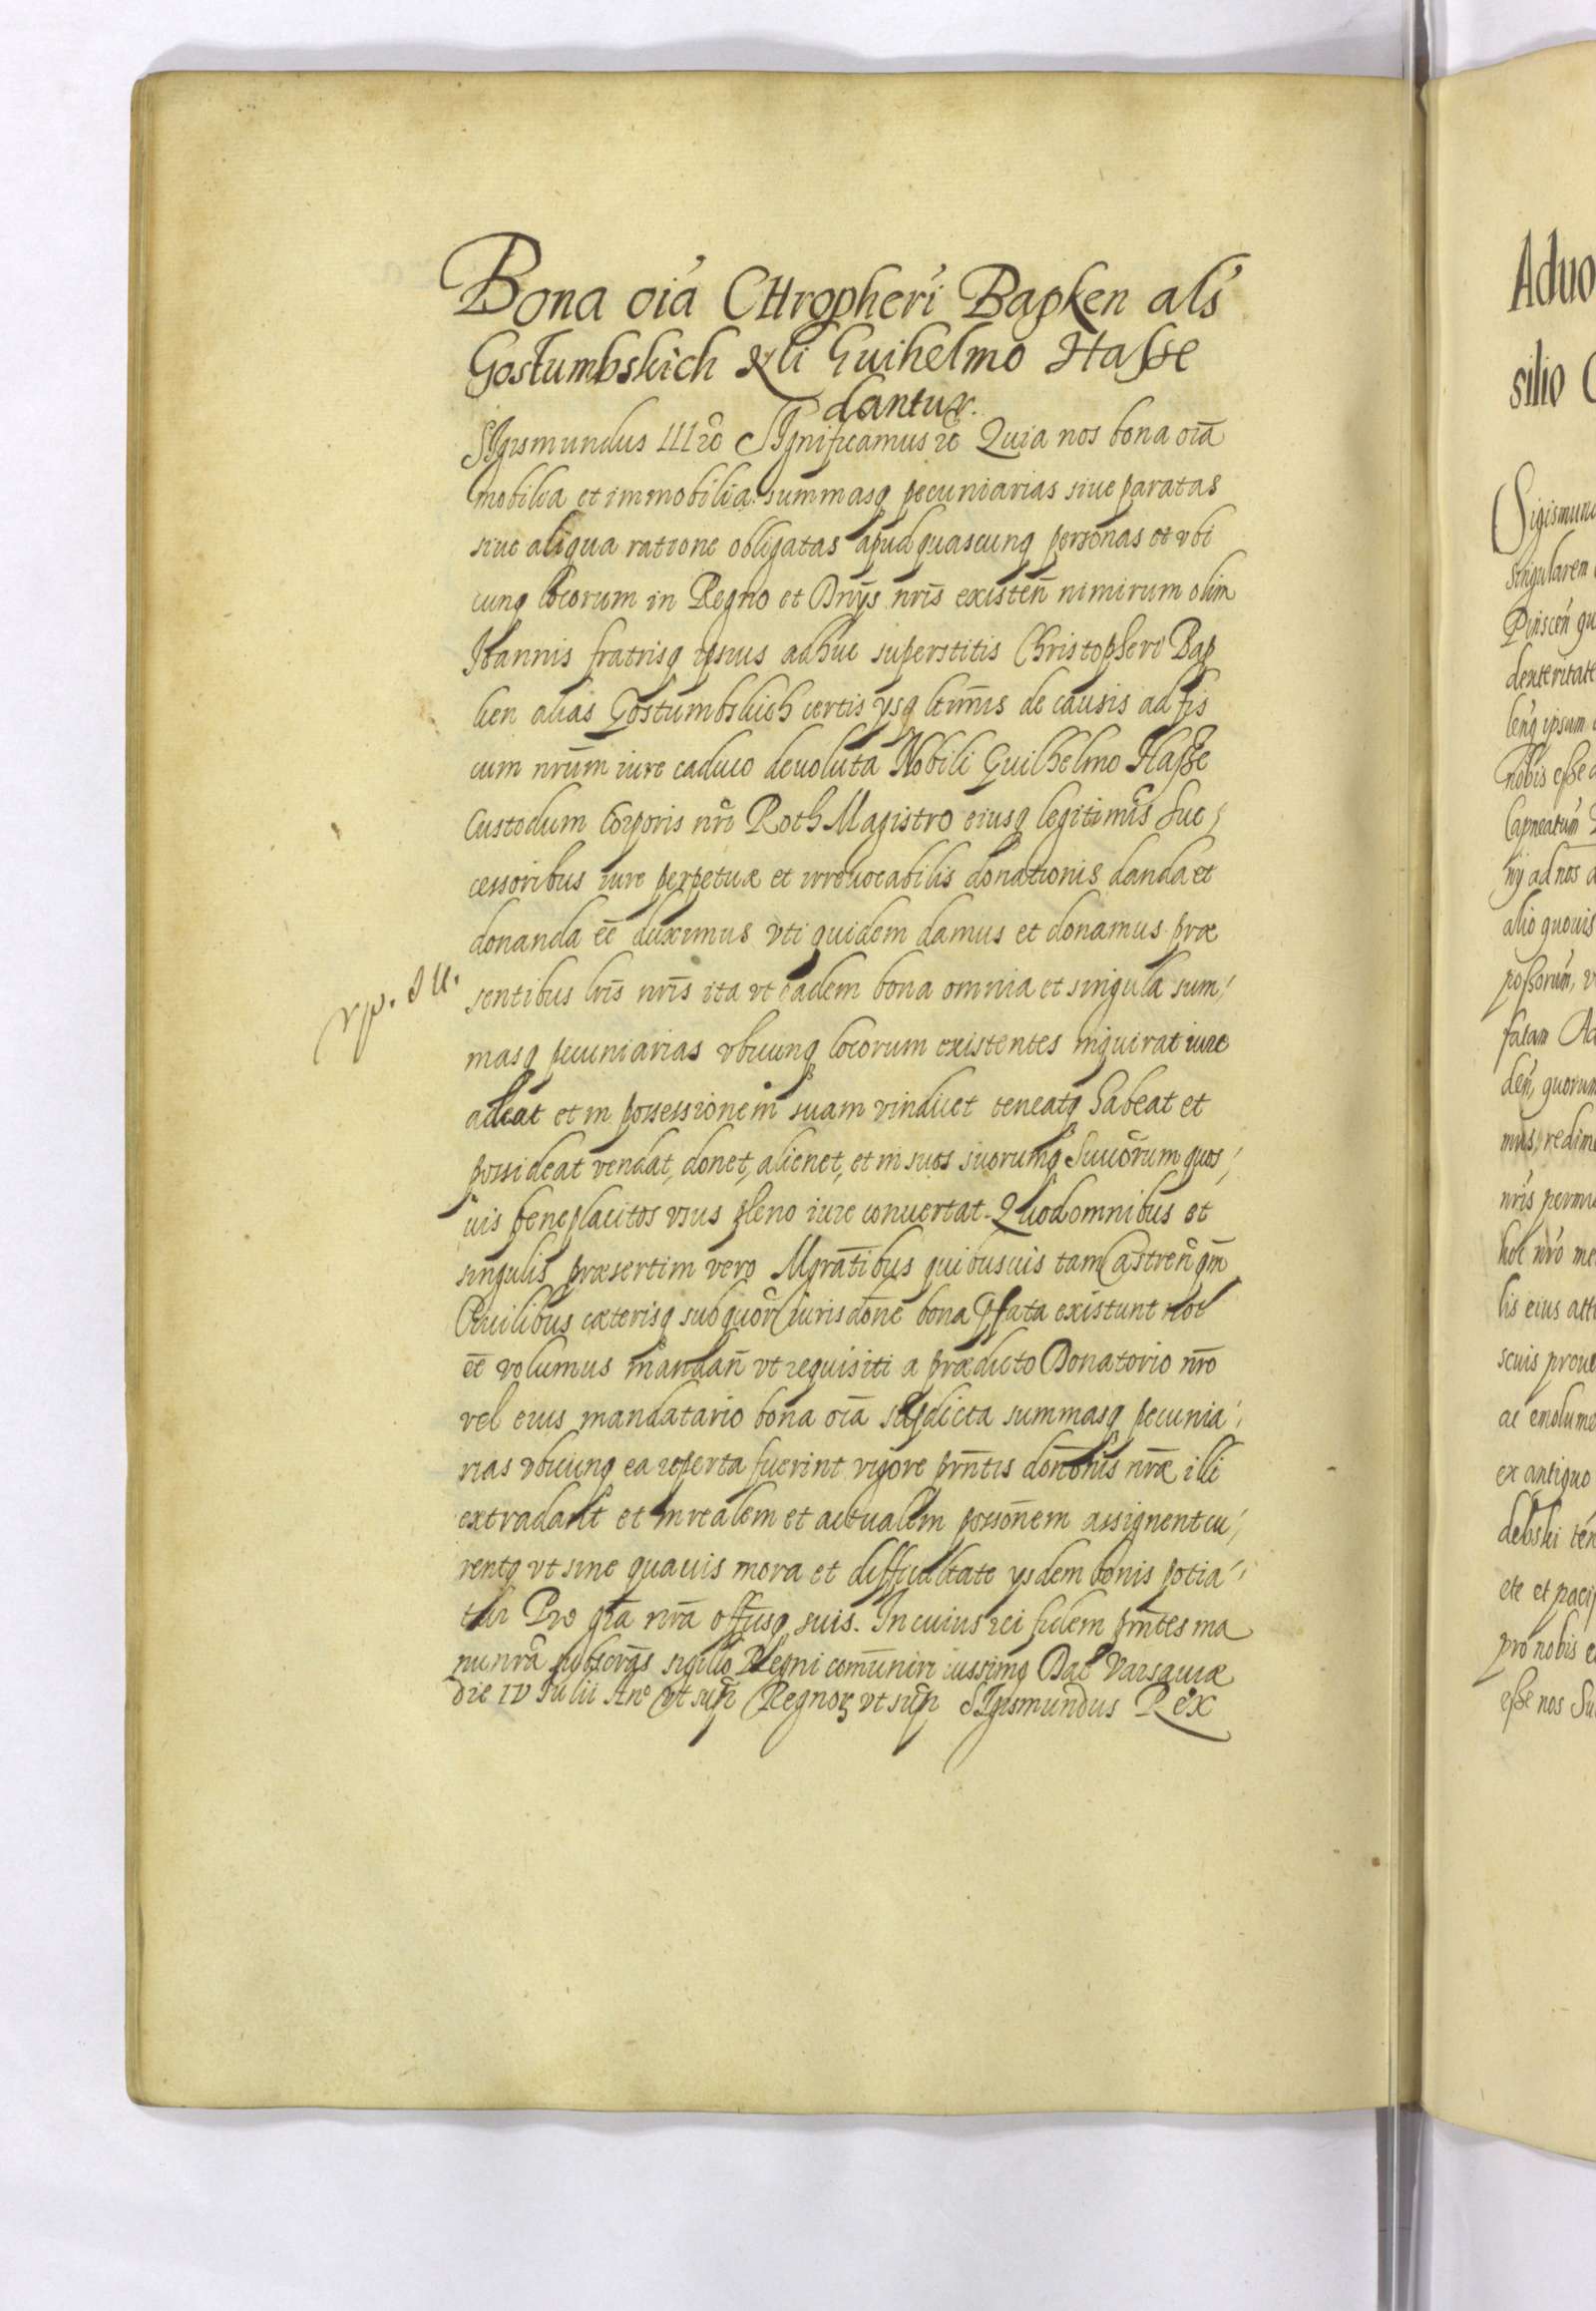 Bona oia Chropheri Bapken als
Gostumbskich Nli Guihelmo Hasse
dantur.
SIgismundus III &c SIgnificamus &c Quia nos bona oia
mobilia et immobilia summasq pecuniarias siue paratas
siue aliqua ratione obligatas apud quascunq personas et vbi
cunq locorum in Regno et Dnijs nris existen nimirum olim
Ioannis fratrisq ipsius adhuc superstitis Christopheri Bap
ken alias Gostumbskich certis ijsq ltimis de causis ad fis
cum nrum iure caduco deuoluta Nobili Guilhelmo Hasse
Custodum Corporis nri RothMagistro eiusq legitimis Suc
cessoribus iure perpetuæ et irreuocabilis donationis danda et
donanda ee duximus vti quidem damus et donamus præ
sentibus lris nris ita vt eadem bona omnia et singula sum
masq pecuniarias vbicunq locorum existentes inquirat iure
adeat et in possessionem suam vindicet teneatq habeat et
possideat vendat, donet, alienet, et in suos suorumq Succorum quos
uis beneplacitos vsus pleno iure conuertat. Quod omnibus et
singulis præsertim vero Mgratibus quibusuis tam Castren qm
Ciuilibus cæterisq sub quor iurisdone bona pfata existunt not
ee volumus mandan vt requisiti a prædicto Donatorio nro
vel eius mandatario bona oia supdicta summasq pecunia
rias vbicunq ea reperta fuerint vigore prntis dononis nræ illi
extradant et in realem et actualem possonem assignent cu
rentq vt sine quauis mora et difficultate ijsdem bonis potia
tur Pro gra nra offijsq suis. In cuius rei fidem prntes ma
nu nra subscras sigillo Regni comuniri iussimq Dat Varsauiæ
die IV Iulii Ano vt sup Regnor vt sup SIgismundus Rex
Aduo
silio
Sigismun
singularem
Pinscen qu
dexteritate
lenq ipsam
nobis esse
Capneatum
nij ad nos
alio quouis
possorum, v
falam
den, quorum
mus, redim
nris perm
hoc nro me
lis eius att
scuis proue
ac emolume
ex antiquo
debski ten
ete et paci
pro nobis e
esse nos Su